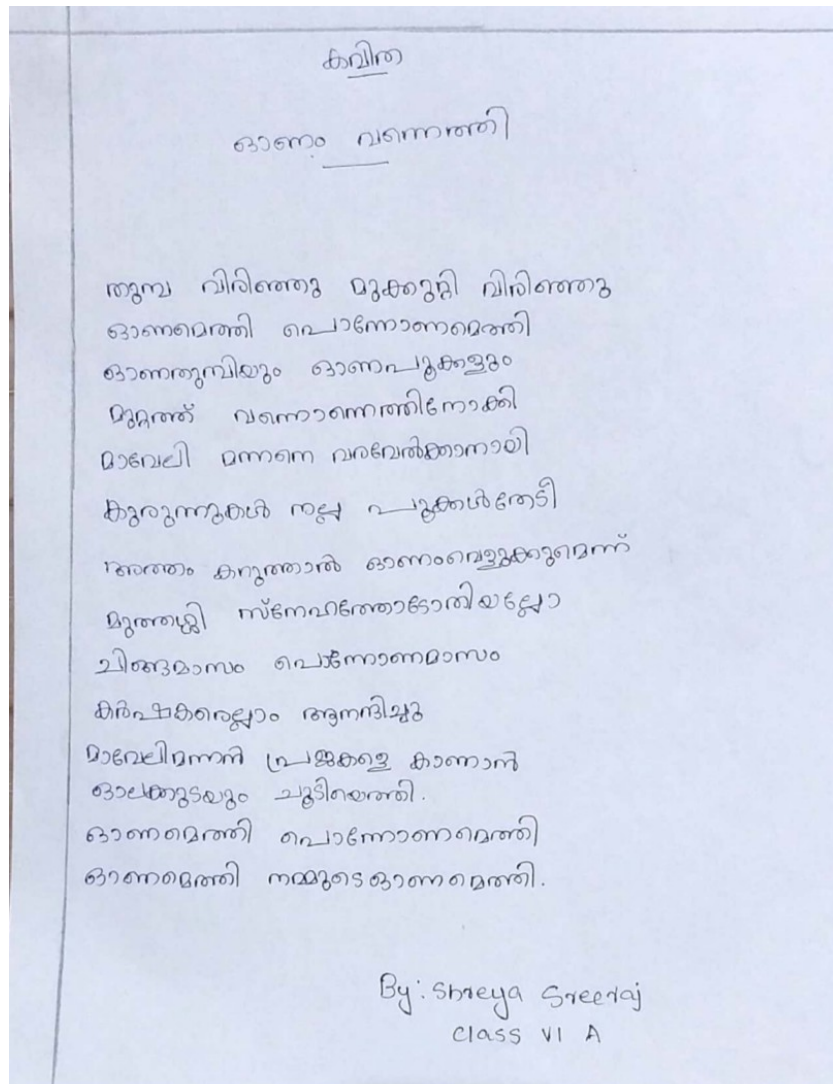 കവിത
ഓണം വന്നെത്തി
തുമ്പ വിരിഞ്ഞു മുക്കുറ്റി വിരിഞ്ഞു
ഓണമെത്തി പൊന്നോണമെത്തി
ഓണതുമ്പിയും ഓണപൂക്കളും
മുറ്റത്ത് വന്നൊന്നെത്തിനോക്കി
മാവേലി മന്നനെ വരവേൽക്കാനായി
കുരുന്നുകൾ നല്ല പൂക്കൾതേടീ
അത്തം കറുത്താൽ ഓണംവെളുക്കുമെന്ന്
മുത്തശ്ശി സ്നേഹത്തോടോതിയല്ലോ
ചിങ്ങമാസം പൊന്നോണമാസം
കർഷകരെല്ലാം ആനന്ദിച്ചു
മാവേലിമന്നൻ പ്രജകളെ കാണാൻ
ഓലക്കുടയും ചൂടിയെത്തി.
ഓണമെത്തി പൊന്നോണമെത്തി
ഓണമെത്തി നമ്മുടെ ഓണമെത്തി.
By: Shreya Sreeraj
Class VI A